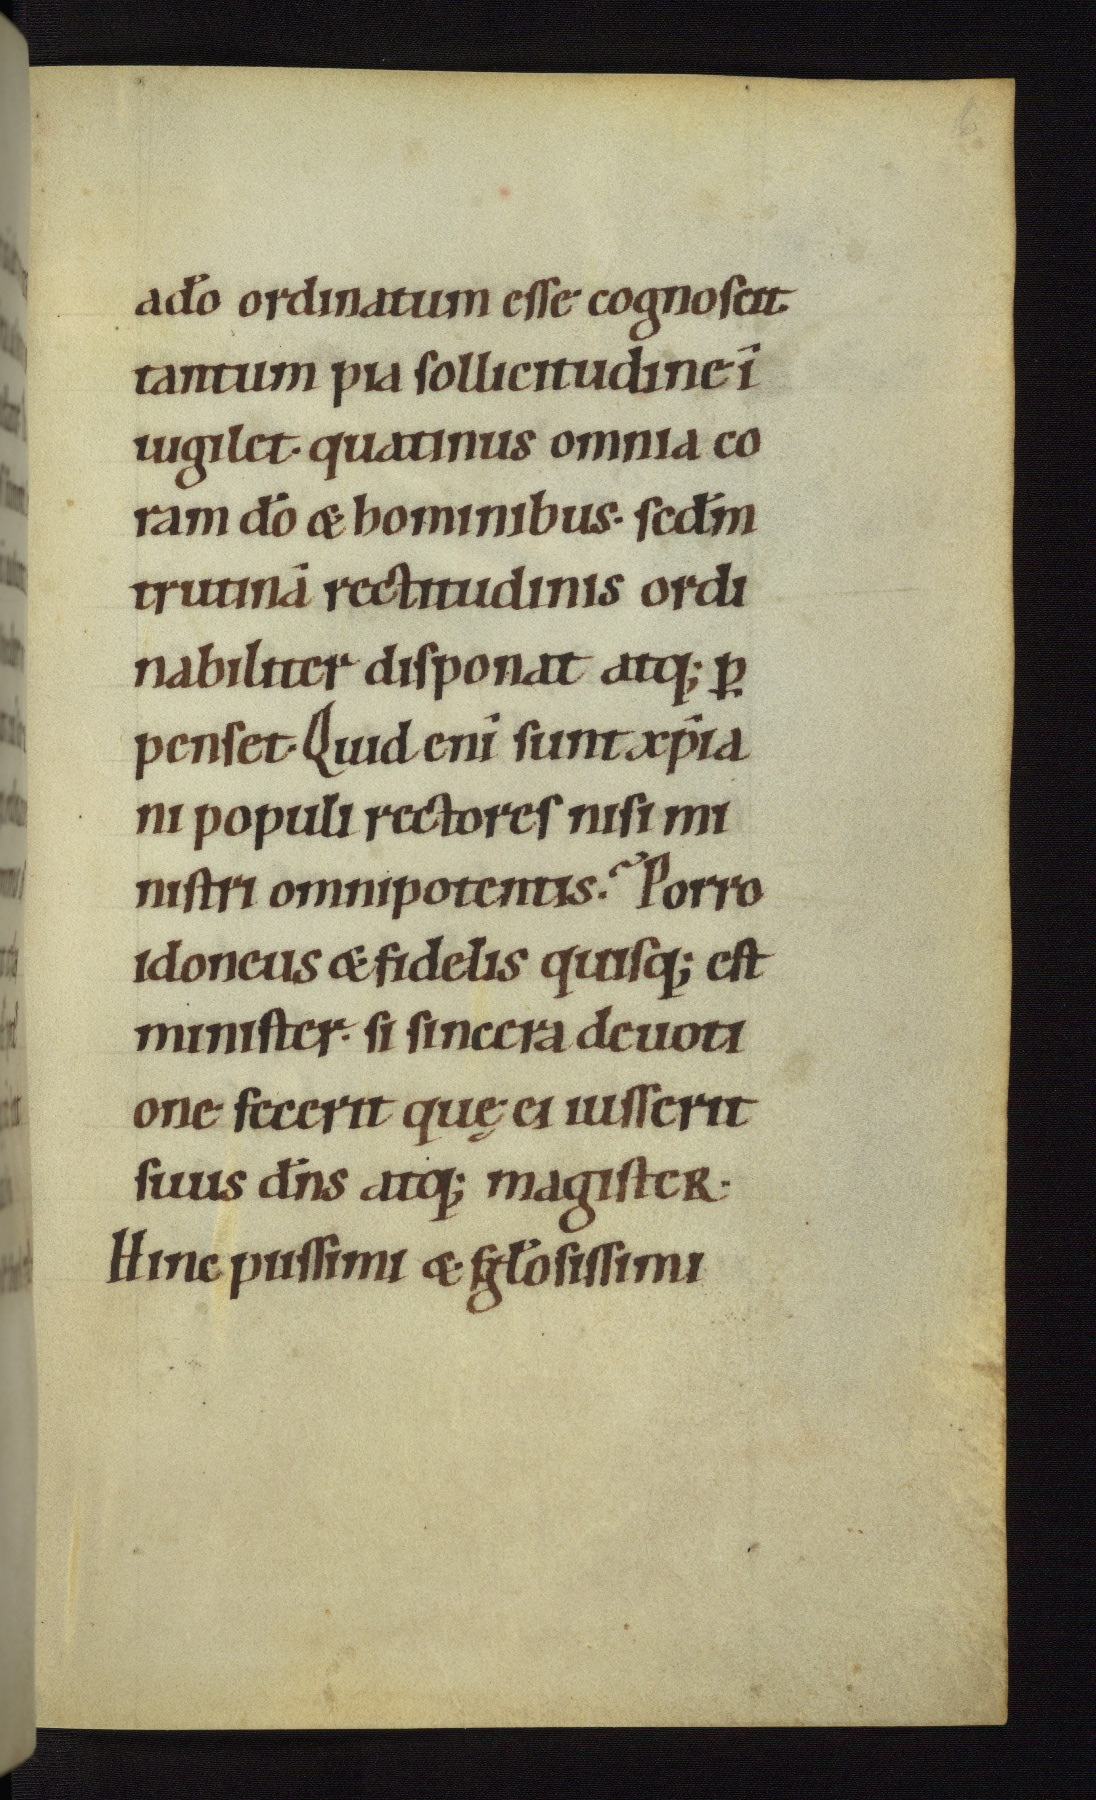 6
ad̄o ordinatum esse cognoscit.
tantum pia sollicitudine ī
uigilet· quatinus omnia co
ram d̄o & hominibus· sedm̄
trutinā rectitudinis ordi
nabiliter disponat atq; ꝑ
penset· Quid enī sunt xp̄ia
ni populi rectores nisi mi
nistri omnipotentis? Porro
idoneus & fidelis quisq; est
minister· si sincera deuoti
one fecerit quę ei iusserit
suus dn̄s atq; magister·
Hinc piissimi & gl̄osissimi